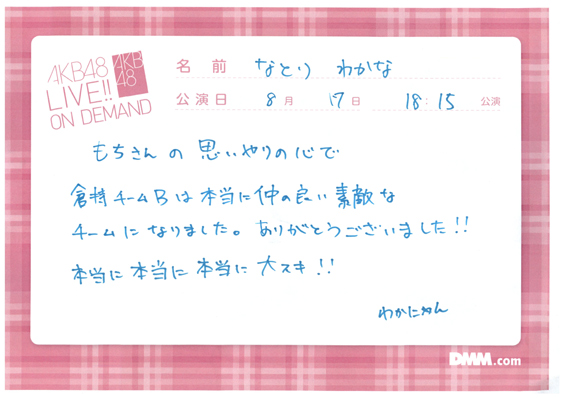 AKB48
LIVE!!
ON DEMAND
AKB
48
名 前 なとり わかな
公演日 8月 17日 18:15 公演
もちさんの思いやりの心で
倉持チームBは本当に仲の良い素敵な
チームになりました。ありがとうございました!!
本当に本当に本当に大スキ!!
わかにゃん
DMM.com